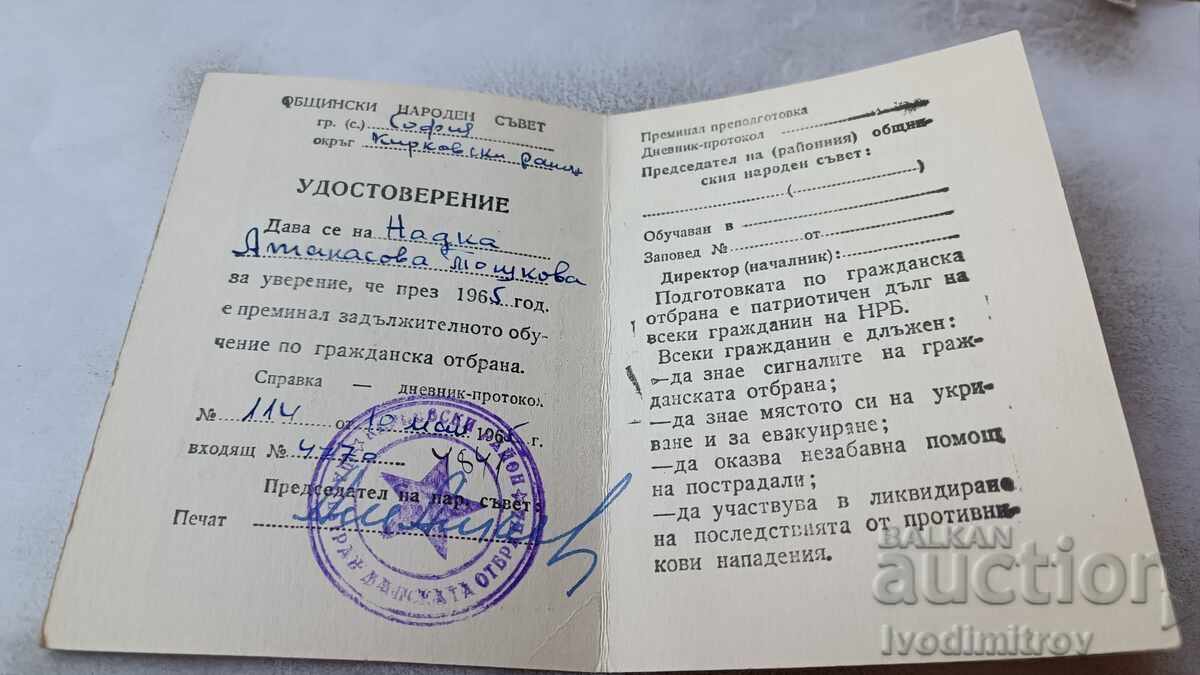 ОБЩИНСКИ НАРОДЕН СЪВЕТ
гр. (с.) София
окръг Кирковски район
УДОСТОВЕРЕНИЕ
Дава се на Надка
Атанасова Мошкова
за уверение, че през 1965 год.
е преминал задължителното обу-
чение по гражданска отбрана.
Справка — дневник-протокол
№ 114 от 10 май 1965 г.
входящ № 477а
Председател на нар. съвет
Печат
КИРКОВСКИ РАЙОН
ГРАЖДАНСКАТА ОТБРАНА
Преминал преподготовка
Дневник-протокол
Председател на (районния) общин-
ския народен съвет:
( )
Обучаван в
Заповед № от
Директор (началник):
Подготовката по гражданска
отбрана е патриотичен дълг на
всеки гражданин на НРБ.
Всеки гражданин е длъжен:
—да знае сигналите на граж-
данската отбрана;
—да знае мястото си на укри-
ване и за евакуиране;
—да оказва незабавна помощ
на пострадали;
—да участвува в ликвидиране
на последствията от противни-
кови нападения.
BALKAN
auction
Ivodimitrov